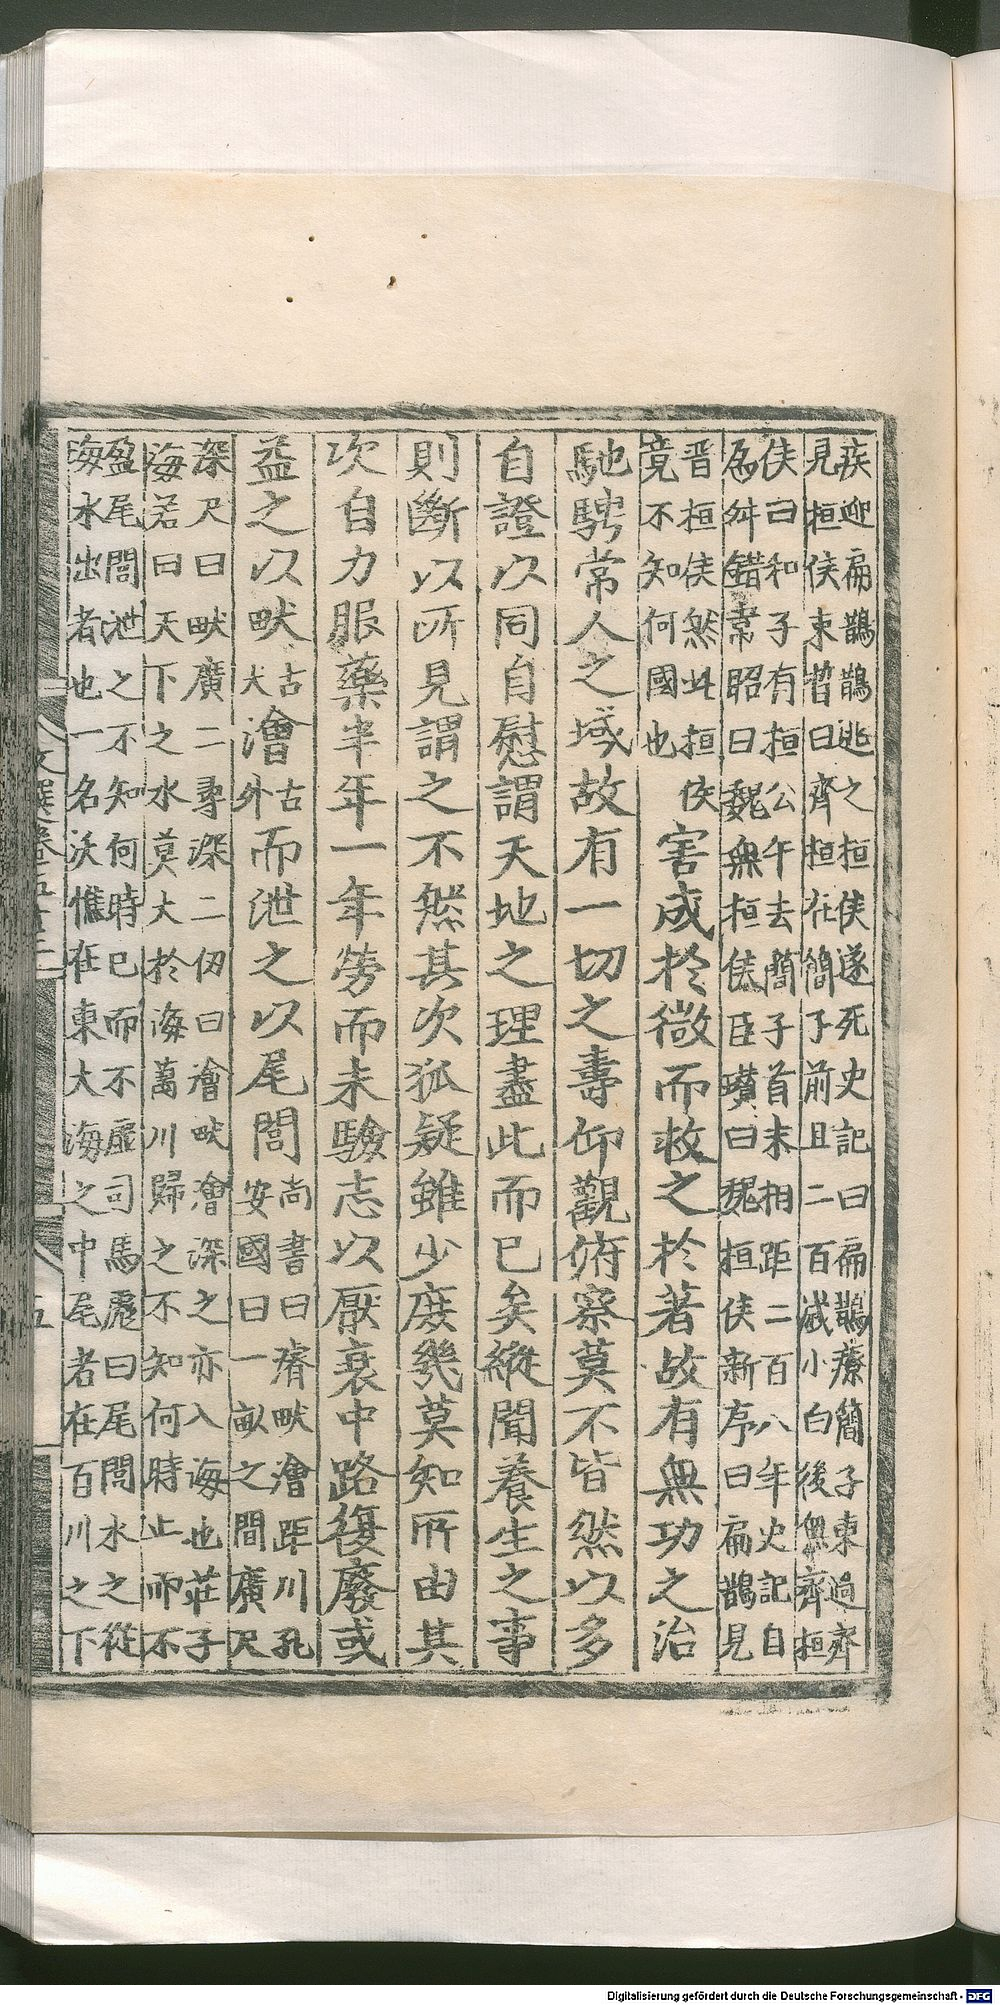 疾迎扁鵲鵲逃之桓侯遂死史記曰扁鵲療簡子東過齊
見桓侯束晳曰齊桓在簡子前且二百歲小白後無齊桓
侯曰和子有桓公午去簡子首末相距二百八年史記自
爲舛錯韋昭曰魏無桓侯臣瓚曰魏桓侯新序曰扁鵲見
晋桓侯然此桓侯
竟不知何國也
害成於微而救之於著故有無功之治
馳騁常人之域故有一切之壽仰觀俯察莫不皆然以多
自證以同自慰謂天地之理盡此而已矣縱聞養生之事
則斷以所見謂之不然其次狐疑雖少庶幾莫知所由其
次自力服藥半年一年勞而未驗志以厭衰中路復廢或
益之以畎古犬澮古外而泄之以尾閭尚書曰濬畎澮距川孔
安國曰一畝之間廣尺
深尺曰畎廣二尋深二仞曰澮畎澮深之亦入海也莊子
海若曰天下之水莫大於海萬川歸之不知何時止而不
盈尾閭泄之不知何時已而不虛司馬彪曰尾閭水之從
海水出者也一名沃燋在東大海之中尾者在百川之下
文選卷五十三
五
Digitalisierung gefördert durch die Deutsche Forschungsgemeinschaft - DFG